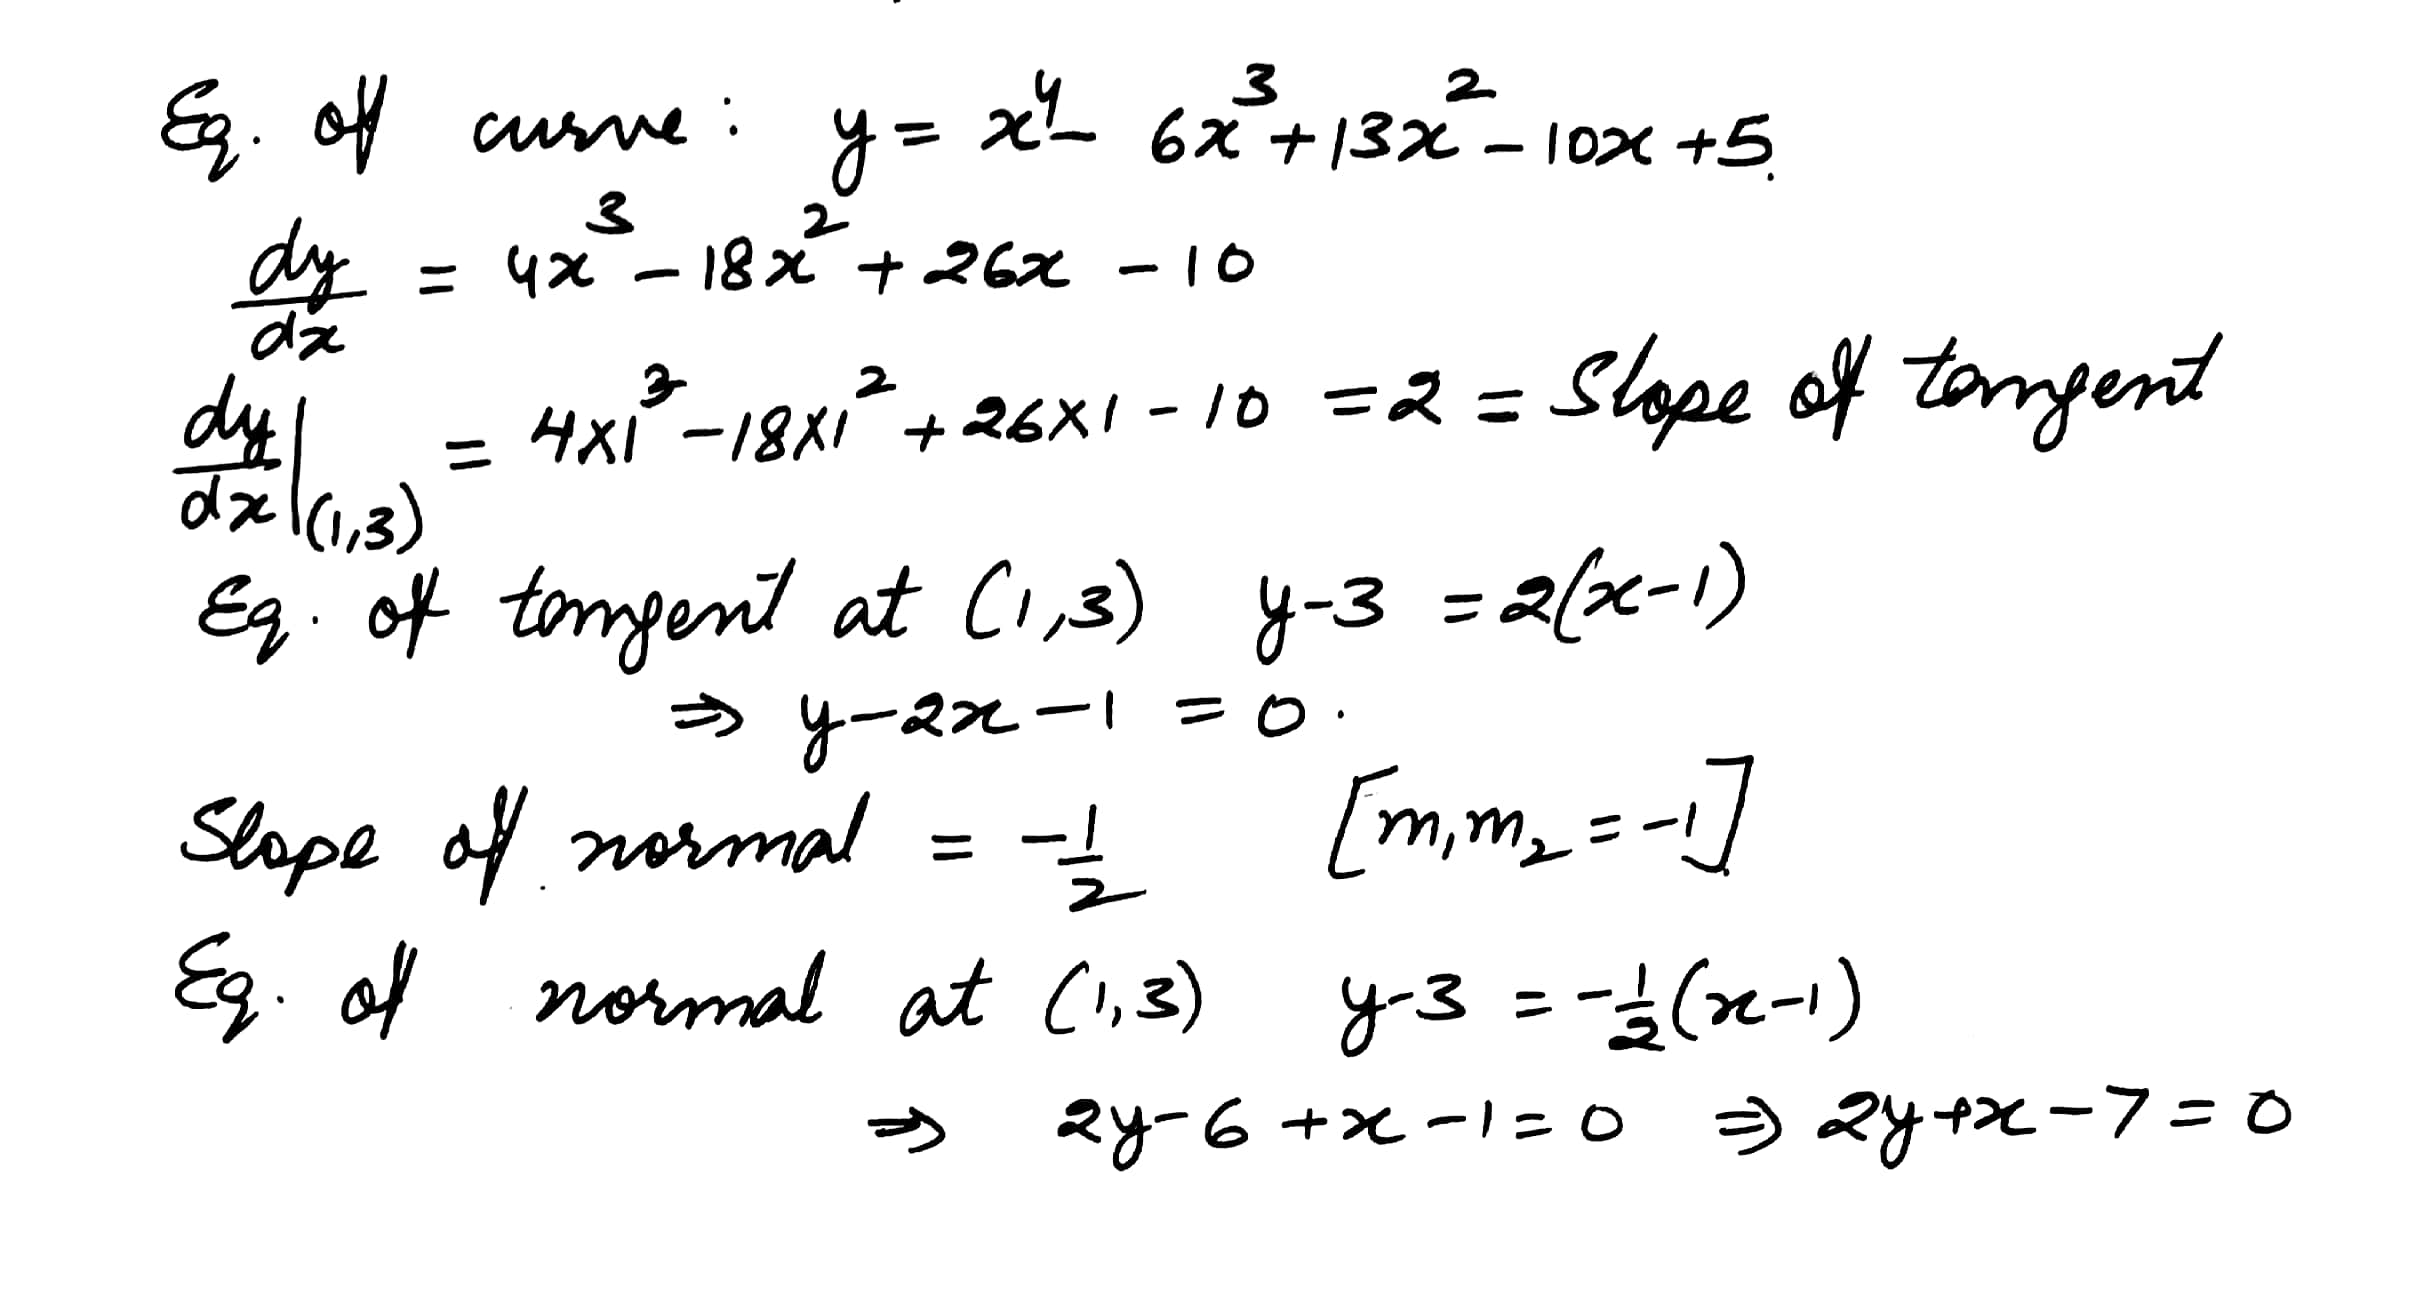 Eq. of curve: y = x⁴ - 6x³ + 13x² - 10x + 5.
dy/dx = 4x³ - 18x² + 26x - 10
dy/dx|(1,3) = 4×1³ - 18×1² + 26×1 - 10 = 2 = Slope of tangent
Eq. of tangent at (1,3) y-3 = 2(x-1)
⇒ y-2x-1 = 0.
Slope of normal = -1/2 [m₁m₂ = -1]
Eq. of normal at (1,3) y-3 = -1/2(x-1)
⇒ 2y-6+x-1=0 ⇒ 2y+x-7=0